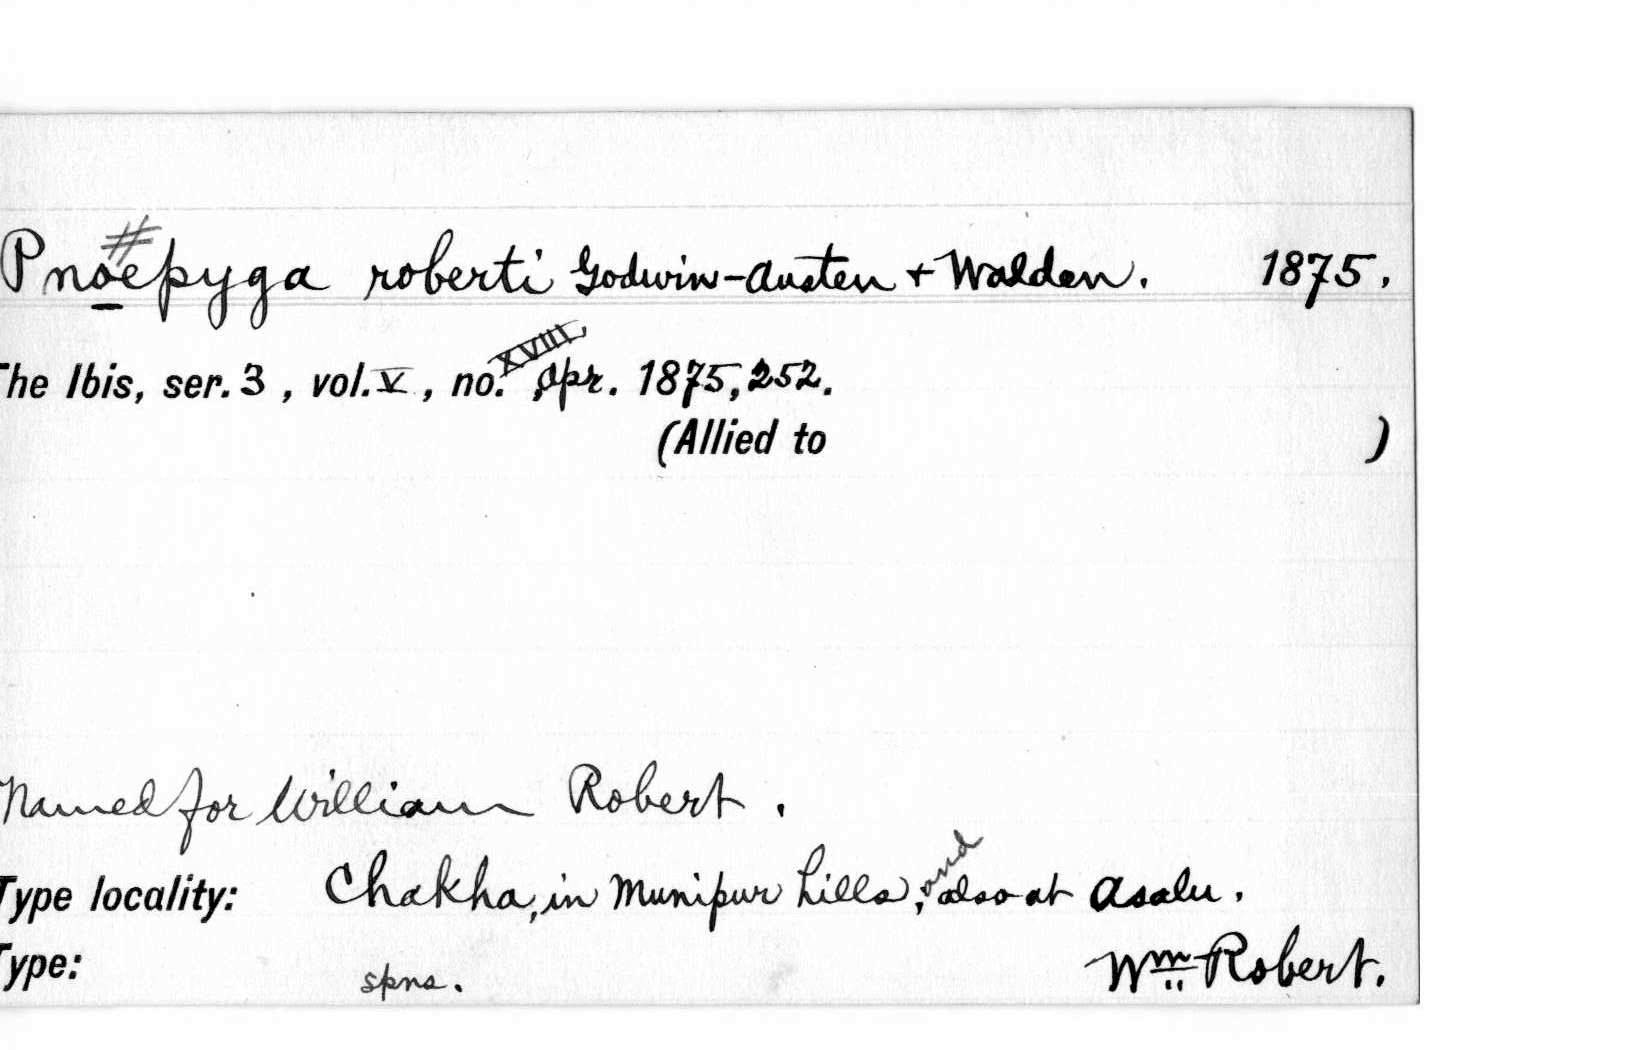 Pnoepyga roberti Godwin-Austen + Walden. 1875.
The Ibis, ser. 3, vol. V, no. XVIII, Apr. 1875, 252.
(Allied to )
Named for William Robert.
Type locality: Chakha, in Munipur hills; and also at Asalu.
Type: spns. Wm Robert.